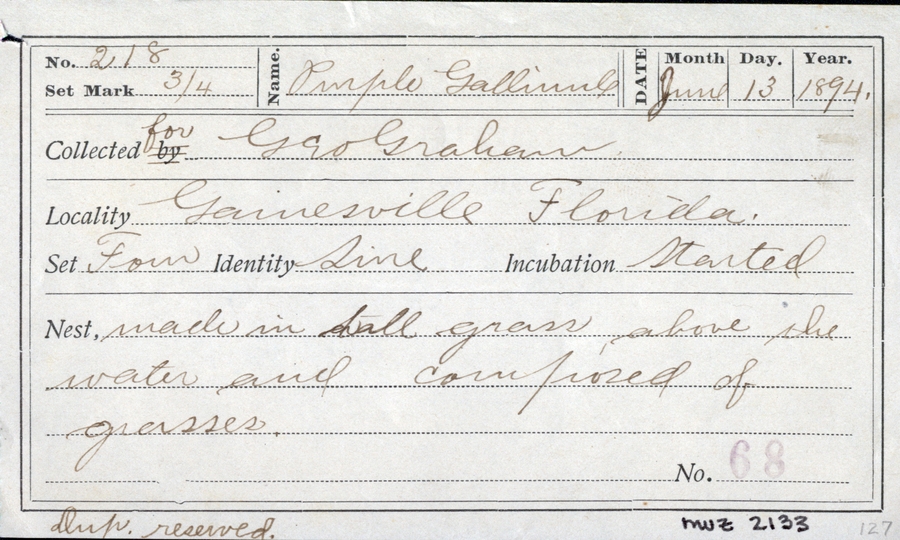 No. 218
Set Mark 3/4
Name. Purple Gallinule
DATE Month Day. Year.
June 13 1894.
for
Collected by Geo Graham
Locality Gainesville Florida.
Set Four Identity Sure Incubation Started
Nest, made in tall grass above the
water and composed of
grasses.
No. 68
Dup. reserved.
MVZ 2133
127